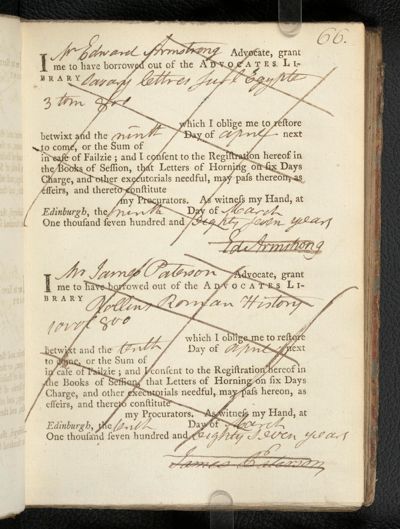 66.
I Mr Edward Armstrong Advocate, grant
me to have borrowed out of the ADVOCATES LI-
BRARY Savary lettres sur l'Egypte
3 tom 8vo
which I oblige me to restore
betwixt and the ninth Day of april next
to come, or the Sum of
in case of Failzie; and I consent to the Registration hereof in
the Books of Session, that Letters of Horning on six Days
Charge, and other executorials needful, may pass thereon, as
effeirs, and thereto constitute
my Procurators. As witness my Hand, at
Edinburgh, the ninth Day of March
One thousand seven hundred and eighty seven years
Ed. Armstrong
I Mr James Paterson Advocate, grant
me to have borrowed out of the ADVOCATES LI-
BRARY Rollins Roman History
10 vol 8vo
which I oblige me to restore
betwixt and the tenth Day of april next
to come, or the Sum of
in case of Failzie; and I consent to the Registration hereof in
the Books of Session, that Letters of Horning on six Days
Charge, and other executorials needful, may pass hereon, as
effeirs, and thereto constitute
my Procurators. As witness my Hand, at
Edinburgh, the tenth Day of March
One thousand seven hundred and eighty seven years
James Paterson